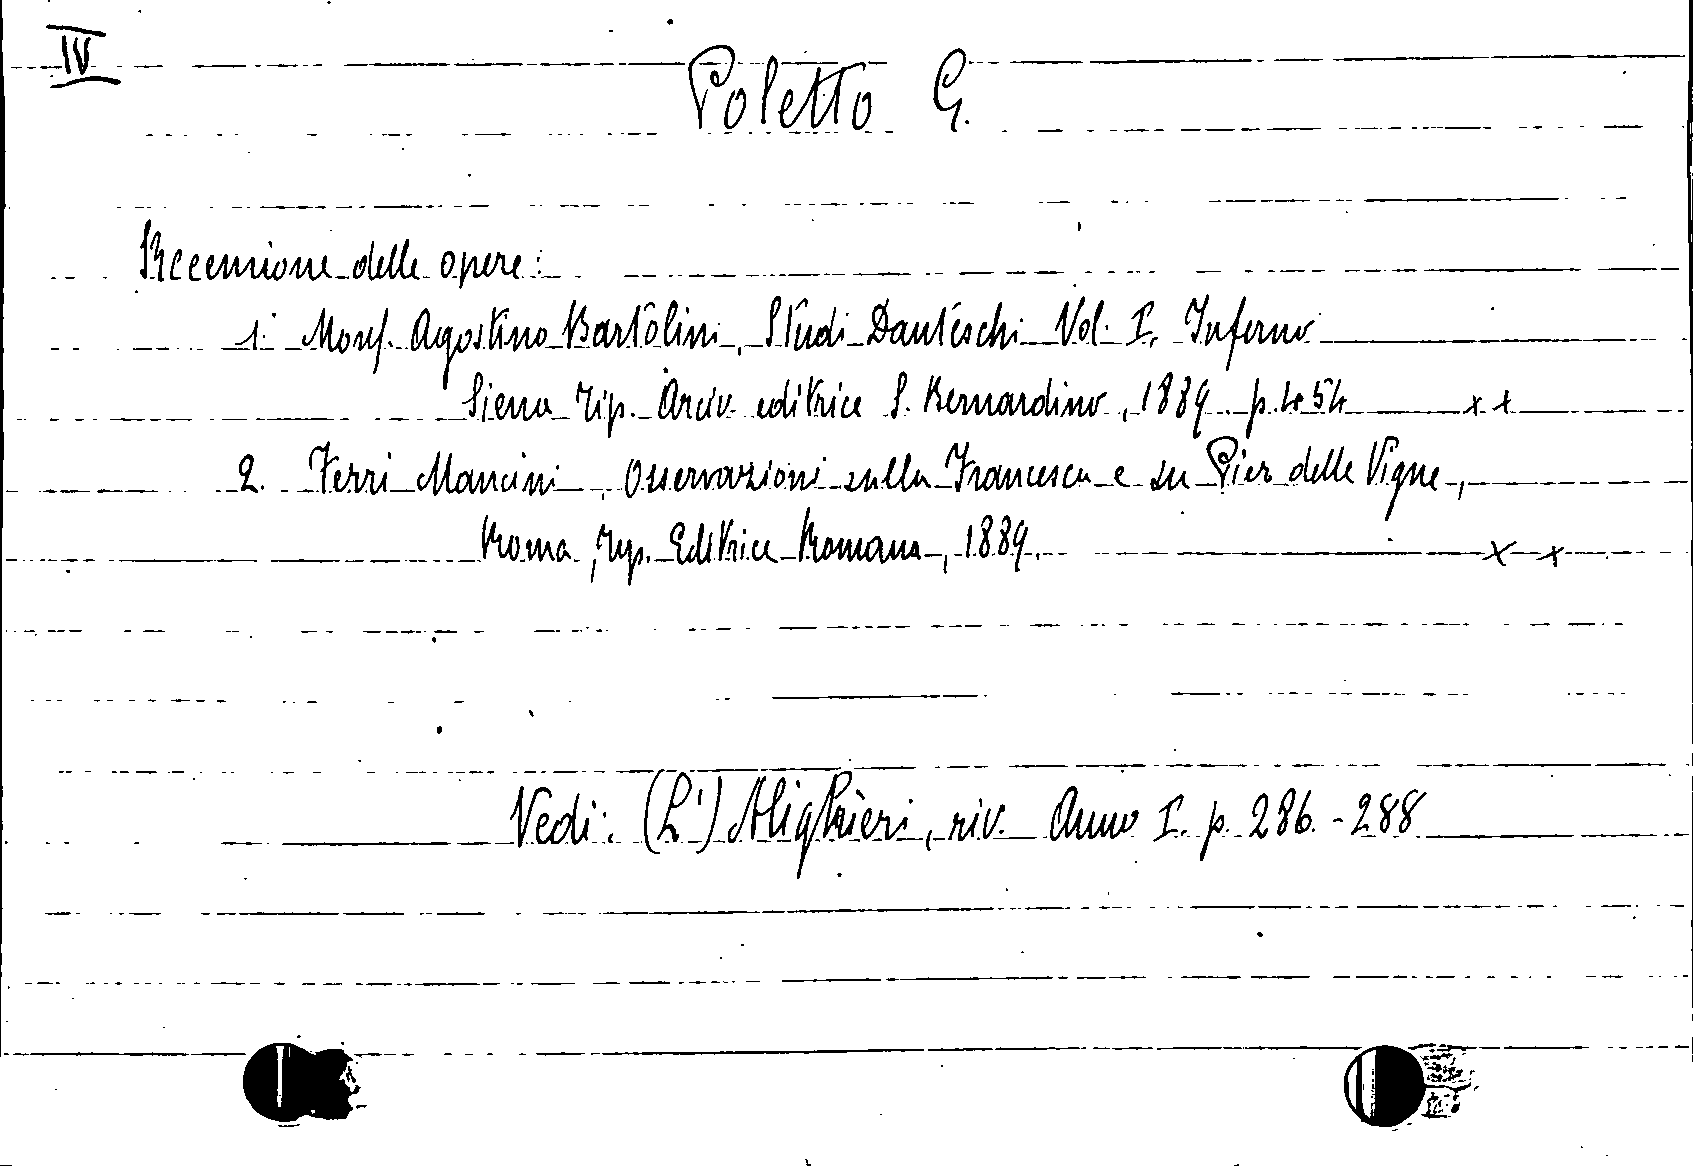 IV
Poletto G.
Recensione delle opere:
1. Mons. Agostino Bartolini, Studi Danteschi Vol. I. Inferno
Siena Tip. Arciv. editrice S. Bernardino, 1889. p. 454 x x
2. Ferri Mancini, Osservazioni sulla Francesca e su Pier delle Vigne,
Roma, Tip. Editrice Romana, 1889. x x
Vedi: (L') Alighieri, riv. Anno I. p. 286.-288